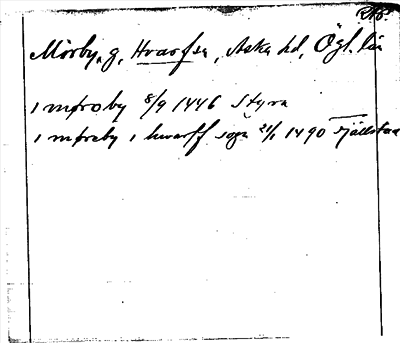 RAB.
Mörby, g, Hvarfs sn, Aska hd, Ögl. län
i mørby 8/9 1446 Styra
i mørby i hwarff sogn 21/1 1490 Fjällstad